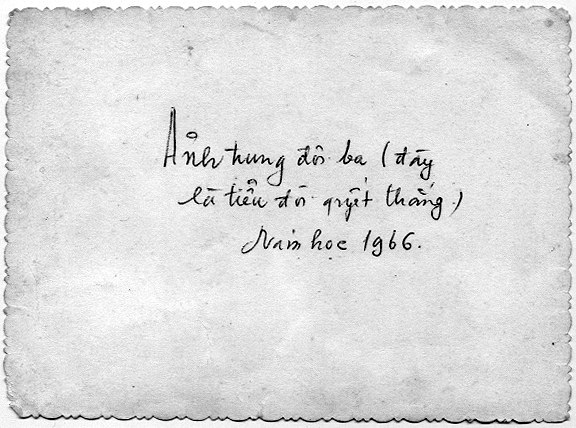 Ảnh trung đội ba (đây
là tiểu đội quyết thắng)
Năm học 1966.